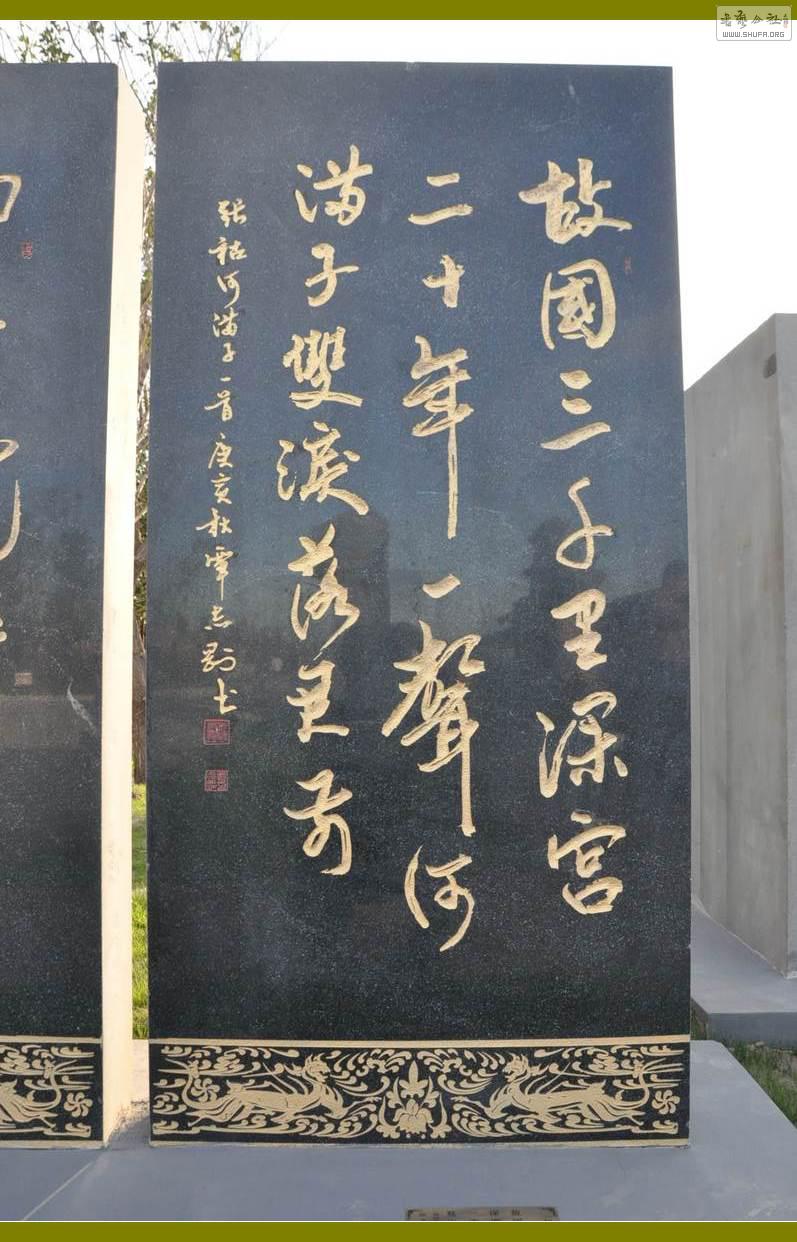 故國三千里深宮
二十年一聲何
滿子雙淚落君前
張祜何滿子一首庚寅秋覃志剛书
書藝公社
WWW.SHUFA.ORG